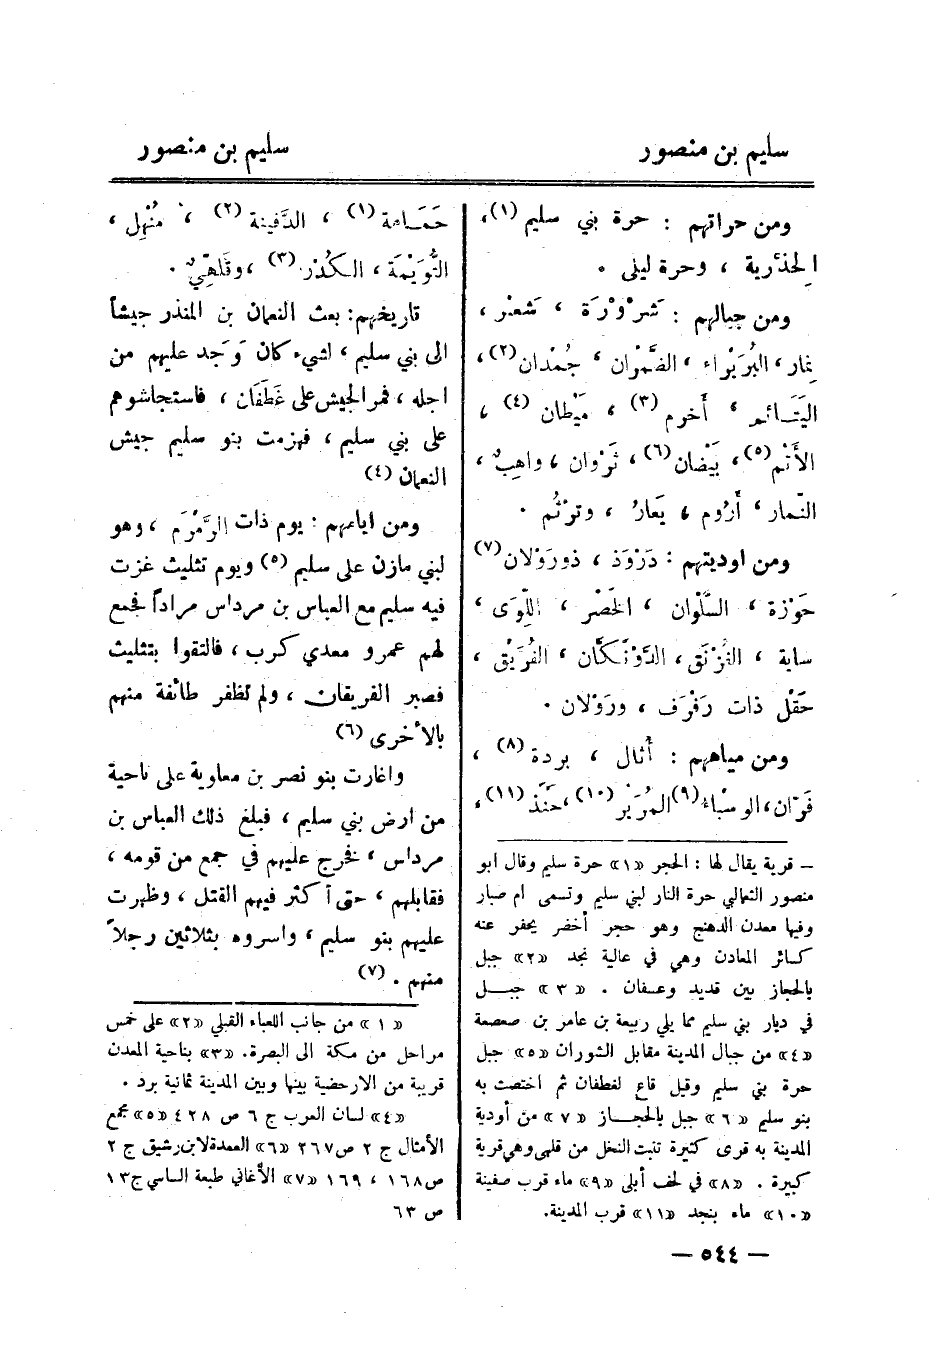 سليم بن منصور
سليم بن منصور
ومن حراتهم : حرة بني سليم (١)،
الحِذْرية ، وحرة ليلى .
ومن جبالهم : شَرْوْرَة ، شَعْر ،
نِمار ، البُرَيْراء ، الضَّمْران ، جُمْدان (٢)،
اليَتَـائـم ، أَخرم (٣) ، مَيْطان (٤) ،
الأَتْم (٥) ، بَيْضان (٦) ، ثَرْوان ، واهِبٌ ،
النمار ، أَرُوم ، يَعارُ ، وتِرْثُم .
ومن اوديتهم : ذَرْوَذ ، ذو رَوْلان (٧)
حَوْزة ، السَّلْوان ، الخَضْر ، اللِّوَى ،
ساية ، النُزْنَق ، الدَّوْنَكَّان ، الفُرَيْق ،
حَقْل ذات رَفْرَف ، ورَوْلان .
ومن مياههم : أُثال ، بردة (٨) ،
قَرّان، الوسْباء (٩) المُرَيْر (١٠)، حَنَذ (١١)،
– قرية يقال لها : الحجر «١» حرة سليم وقال ابو
منصور الثعالي حرة النار لبني سليم وتسمى ام صبار
وفيها معدن الدهنج وهو حجر أخضر يحفر عنه
كسائر المعادن وهي في عالية نجد «٢» جبل
بالحجاز بين قديد وعسفان . «٣» جبـل
في ديار بني سليم مما يلي ربيعة بن عامر بن صعصعة
«٤» من جبال المدينة مقابل الشوران «٥» جبل
حرة بني سليم وقيل قاع لغطفان ثم اختصت به
بنو سليم «٦» جبل بالحجـاز «٧» من أودية
المدينة به قرى كثيرة تنبت النخل من قلهى وهي قرية
كبيرة . «٨» في لحف أبلى «٩» ماء قرب صفينة
«١٠» ماء بنجد «١١» قرب المدينة.
حَمَـامة (١) ، الدَّفينة (٢) ، مُنْهِل ،
التُّوَيْمَة ، الكُدْر (٣) ، وقَلَهيٌّ .
تاريخهم: بعث النعمان بن المنذر جيشاً
الى بني سليم ، لشيء كان وَجد عليهم من
اجله ، فمر الجيش على غَطَفَان ، فاستجاشوهم
على بني سليم ، فهزمت بنو سليم جيش
النعمان (٤)
ومن ايامهم : يوم ذات الرَّمْرَم ، وهو
لبني مازن على سليم (٥) ويوم تثليث غزت
فيه سليم مع العباس بن مرداس مراداً فجمع
لهم عمرو معدي كرب ، فالتقوا بتثليث
فصبر الفريقان ، ولم تظفر طائفة منهم
بالأخرى (٦)
واغارت بنو نصر بن معاوية على ناحية
من ارض بني سليم ، فبلغ ذلك العباس بن
مرداس ، فخرج عليهم في جمع من قومه ،
فقابلهم ، حتى أكثر فيهم القتل ، وظهرت
عليهم بنو سليم ، واسروه بثلاثين رجلاً
منهم . (٧)
«١» من جانب اللعباء القبلي «٢» على خمس
مراحل من مكة الى البصرة. «٣» بناحية المعدن
قريبة من الارحضية بينها وبين المدينة ثمانية برد .
«٤» لسان العرب ج ٦ ص ٤٢٨ «٥» مجمع
الأمثال ج ٢ ص ٢٦٧ «٦» العمدة لابن رشيق ج ٢
ص ١٦٨ ، ١٦٩ «٧» الأغاني طبعة الساسي ج ١٣
ص ٦٣
— ٥٤٤ —